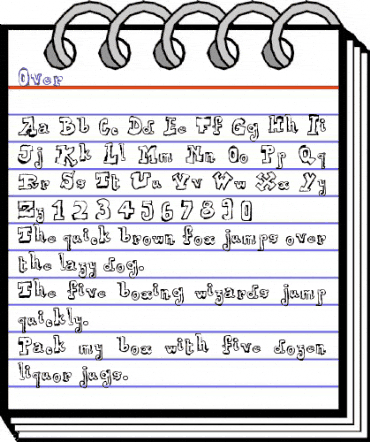 Over
Aa Bb Cc Dd Ee Ff Gg Hh Ii
Jj Kk Ll Mm Nn Oo Pp Qq
Rr Ss Tt Uu Vv Ww Xx Yy
Zz 1 2 3 4 5 6 7 8 9 0
The quick brown fox jumps over
the lazy dog.
The five boxing wizards jump
quickly.
Pack my box with five dozen
liquor jugs.